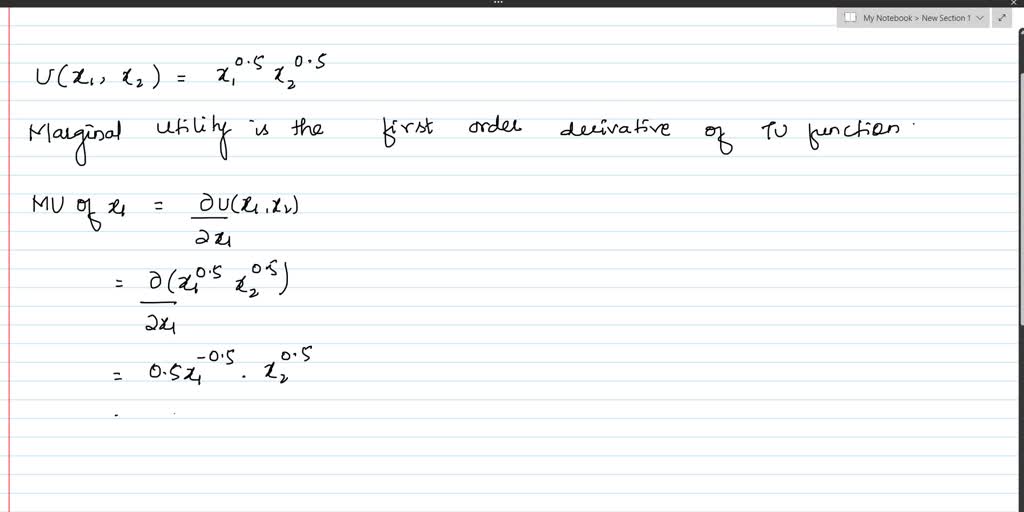 My Notebook > New Section 1
U(x₁, x₂) = x₁^0.5 x₂^0.5
Marginal utility is the first order derivative of TU function.
MU of x₁ = ∂U(x₁, x₂) / ∂x₁
= ∂(x₁^0.5 x₂^0.5) / ∂x₁
= 0.5x₁^-0.5 . x₂^0.5